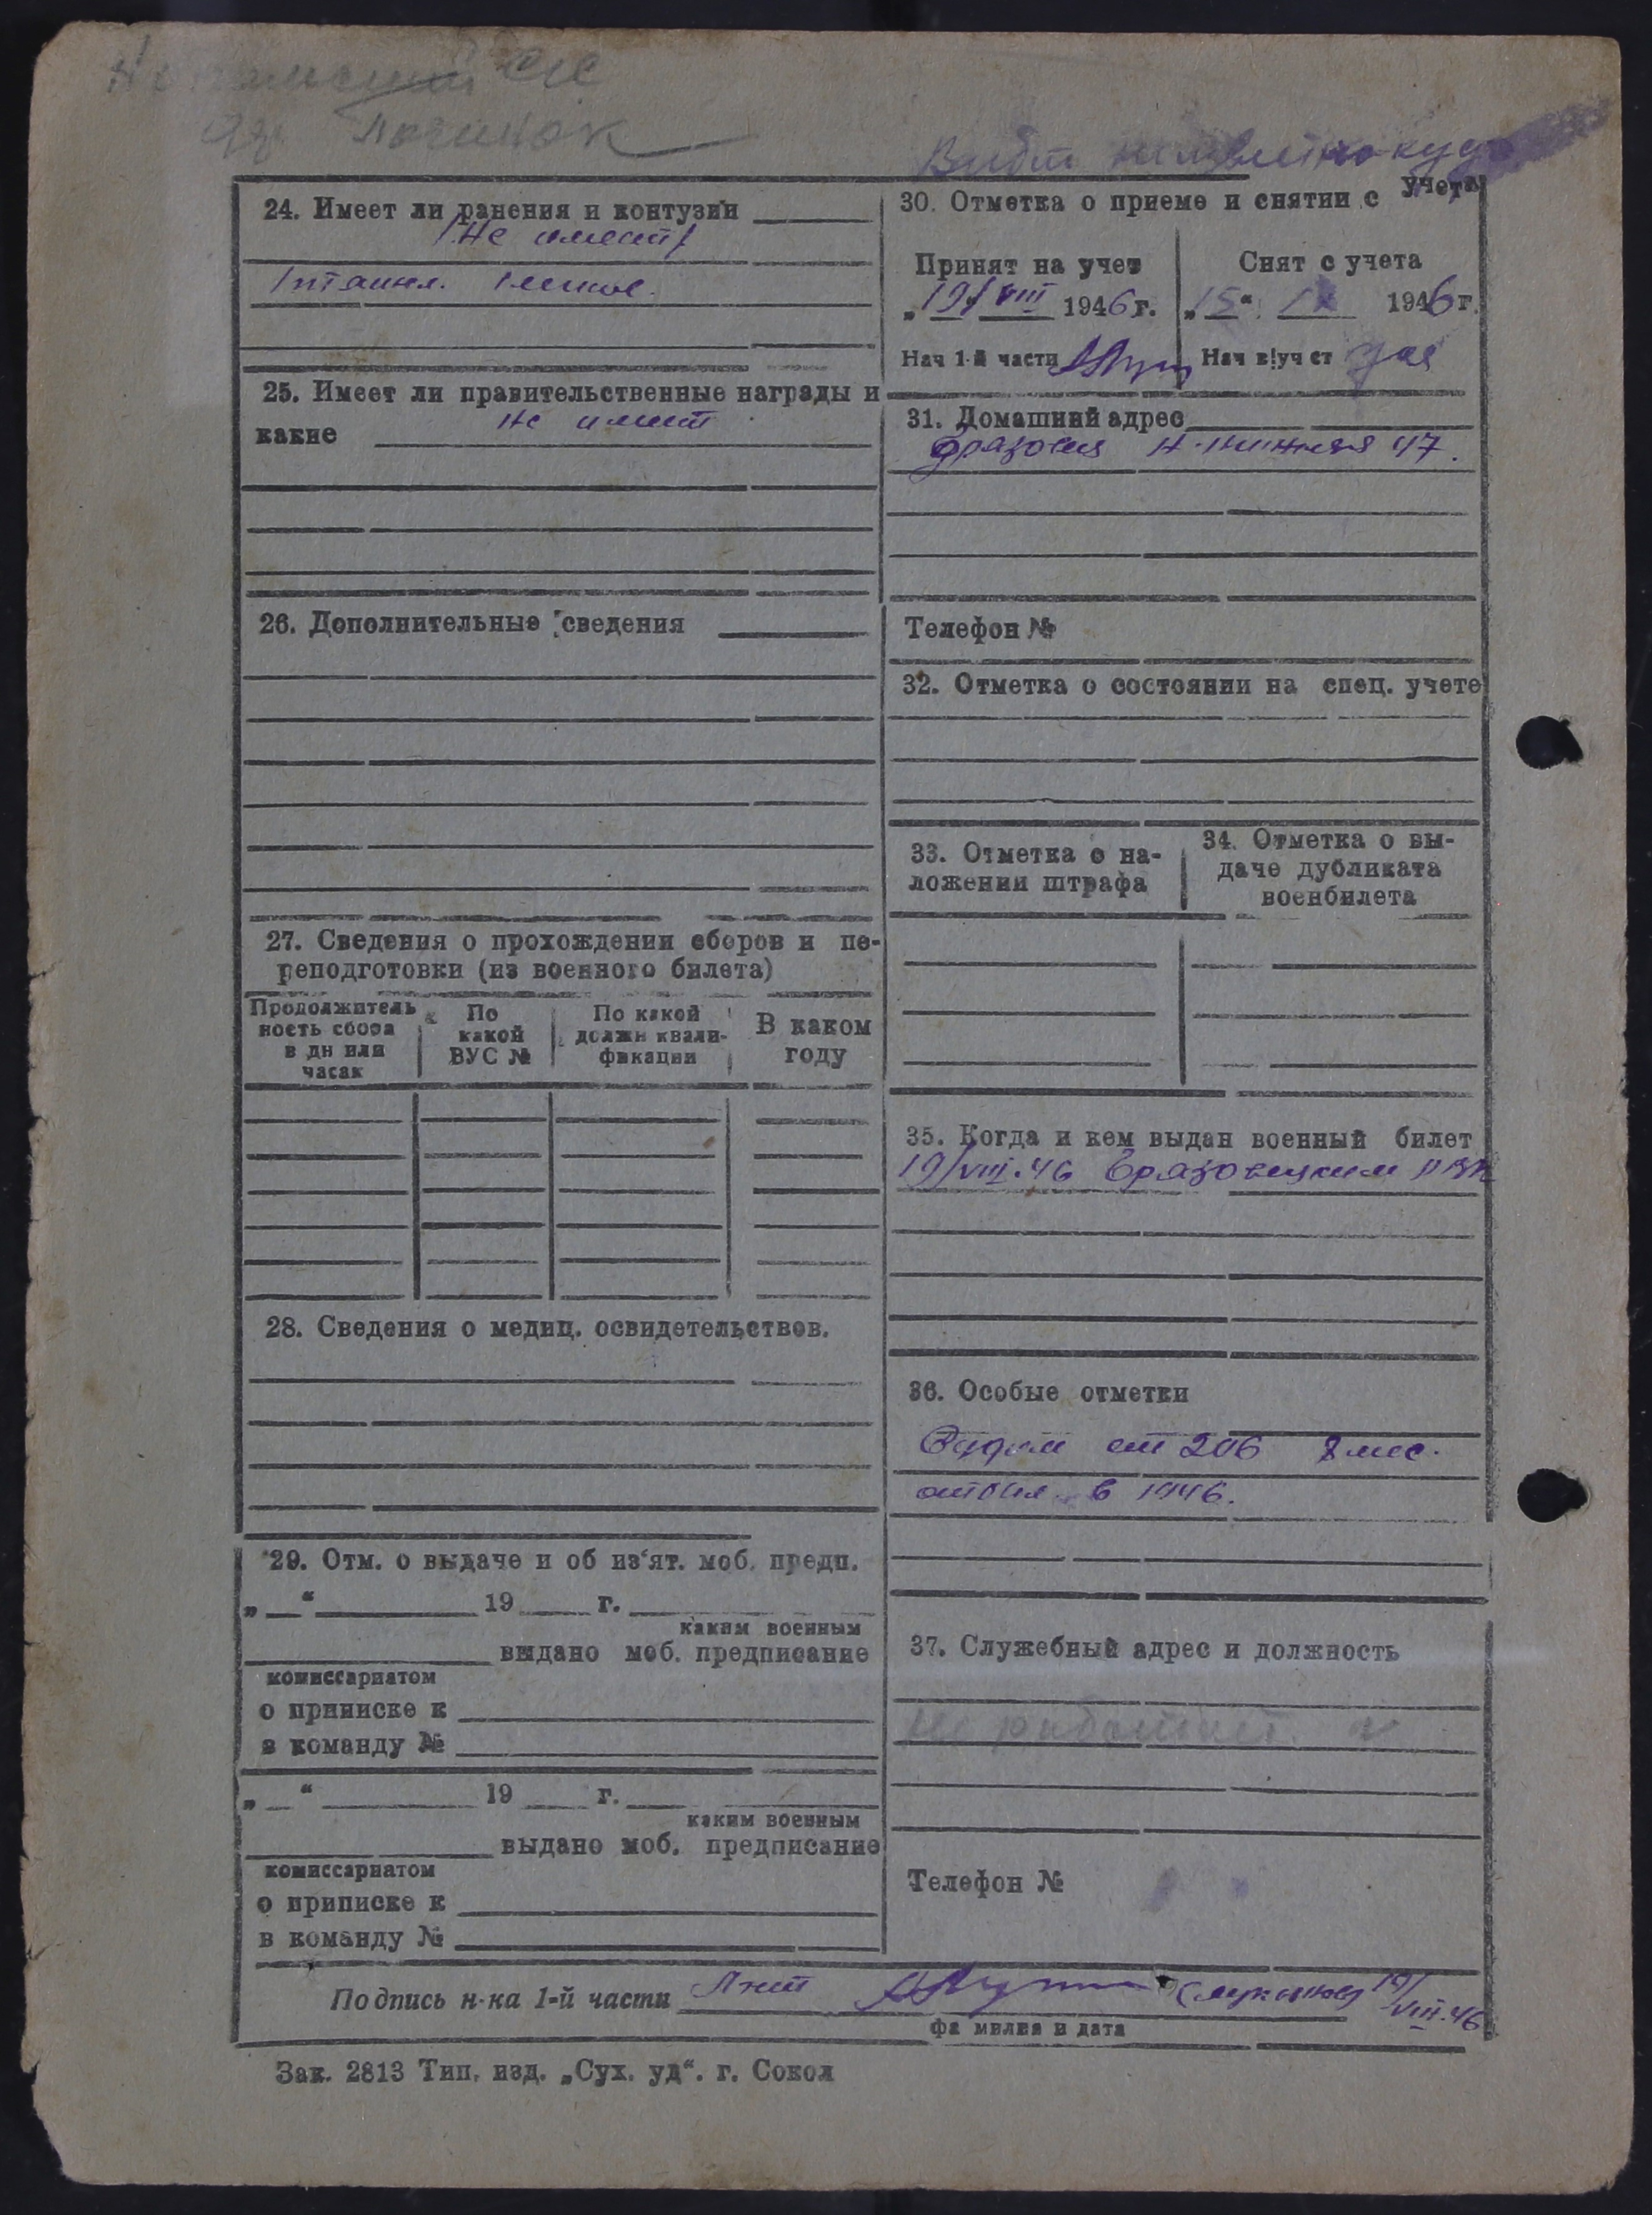 с/с
Починок
Выбыл неизвестно куда
24. Имеет ли ранения и контузии
Не имеет
25. Имеет ли правительственные награды и
какие Не имеет
26. Дополнительные сведения
27. Сведения о прохождении сборов и пе-
реподготовки (из военного билета)
Продолжитель
ность сбора
в дн или
часах
По
какой
ВУС №
По какой
должн квали-
фикации
В каком
году
28. Сведения о медиц. освидетельствов.
29. Отм. о выдаче и об из‘ят. моб. предп.
„ “ 19 г.
каким военным
выдано моб. предписание
комиссариатом
о приписке к
в команду №
„ “ 19 г.
каким военным
выдано моб. предписание
комиссариатом
о приписке к
в команду №
30. Отметка о приеме и снятии с учета
Принят на учет
„19/VIII 1946 г.
Нач 1-й части
Снят с учета
„15“ IX 1946 г.
Нач в/уч ст
31. Домашний адрес
47.
Телефон №
32. Отметка о состоянии на спец. учете
33. Отметка о на-
ложении штрафа
34. Отметка о вы-
даче дубликата
военбилета
35. Когда и кем выдан военный билет
19/VIII.46 РВК
36. Особые отметки
от 206 мес.
в 1946.
37. Служебный адрес и должность
Не работает.
Телефон №
Подпись н-ка 1-й части 19/VIII.46
фамилия и дата
Зак. 2813 Тип. изд. „Сух. уд“. г. Сокол